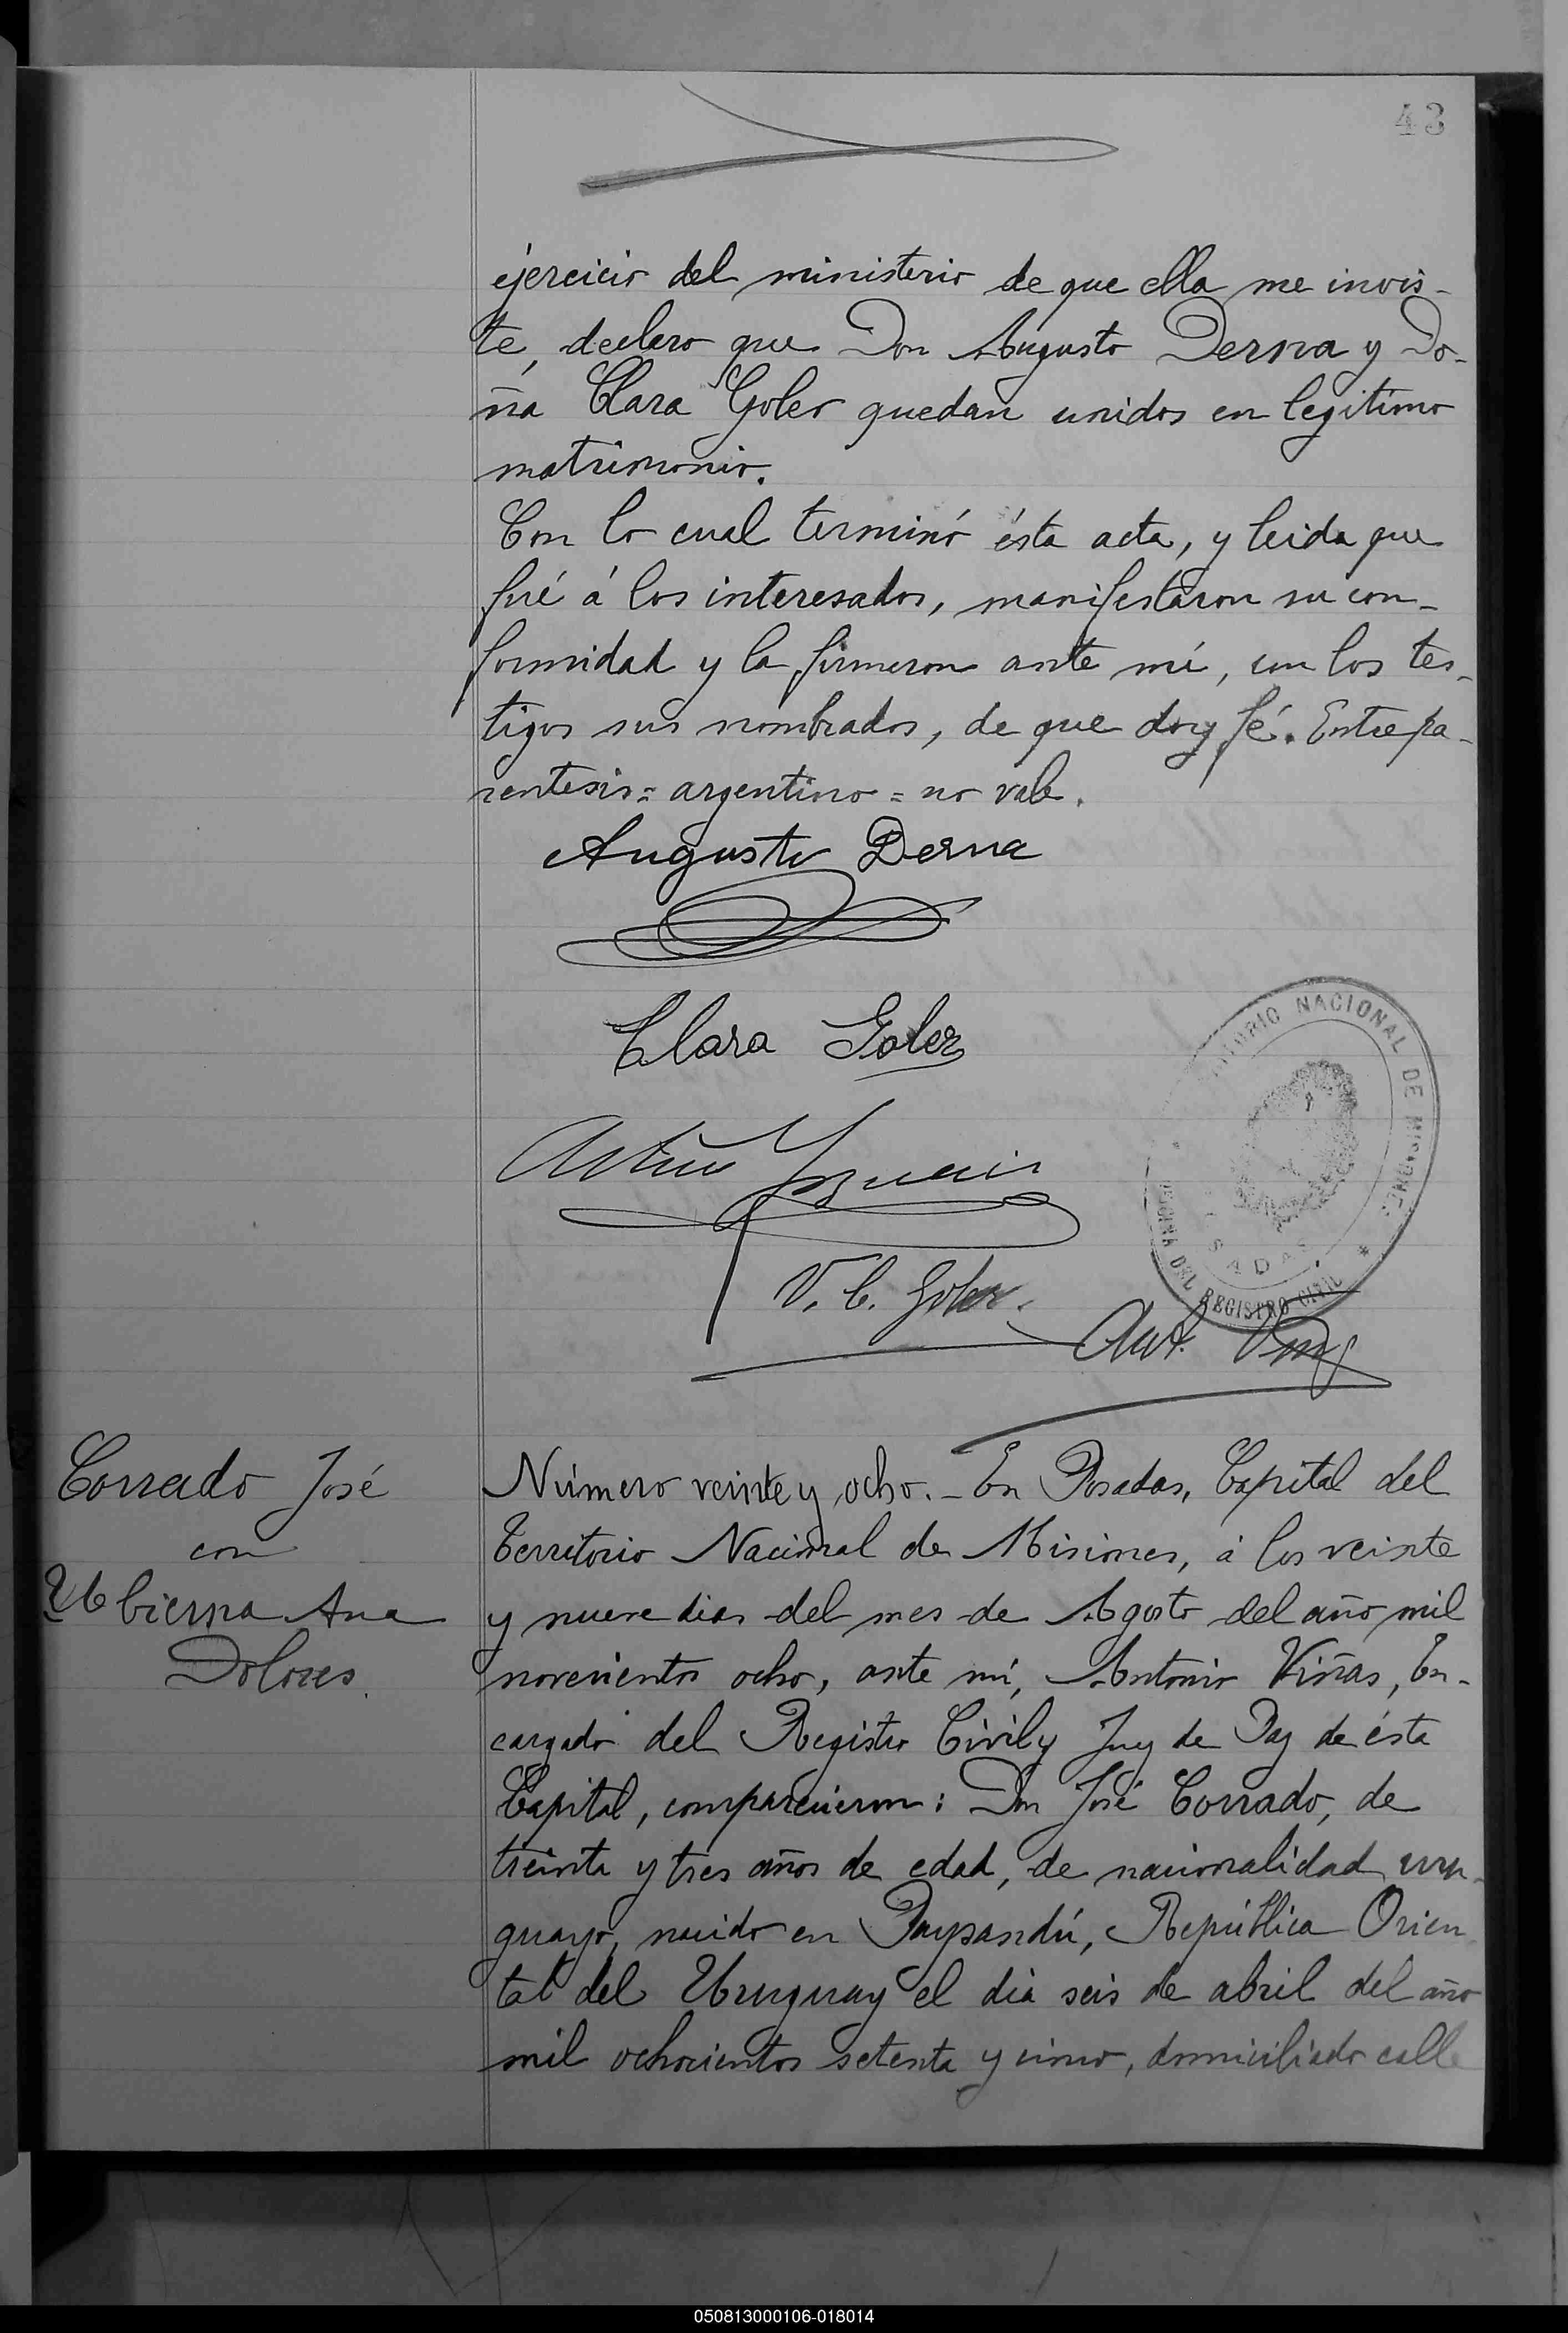 43
ejercicio del ministerio de que ella me invis-
te, declaro que Don Augusto Derna y Do-
ña Clara Goler quedan unidos en legítimo
matrimonio.
Con lo cual terminó ésta acta, y leida que
fué á los interesados, manifestaron su con-
formidad y la firmaron ante mí, con los tes-
tigos sus nombrados, de que doy fé. Entre pa-
rentesis = argentino = no vale.
Augusto Derna
Clara Goler
Arturo
V. C. Goler.
Ant.
TORIO NACIONAL DE MISIONES
OFICINA DEL REGISTRO CIVIL
SADAS
Corrado José
con
Ubierna Ana
Dolores.
Número veinte y ocho. - En Posadas, Capital del
Territorio Nacional de Misiones, á los veinte
y nueve dias del mes de Agosto del año mil
novecientos ocho, ante mí, Antonio Viñas, En-
cargado del Registro Civil y Juez de Paz de ésta
Capital, comparecieron: Don José Corrado, de
treinta y tres años de edad, de nacionalidad uru-
guayo, nacido en Paysandú, República Orien
tal del Uruguay el dia seis de abril del año
mil ochocientos setenta y cinco, domiciliado calle
050813000106-018014